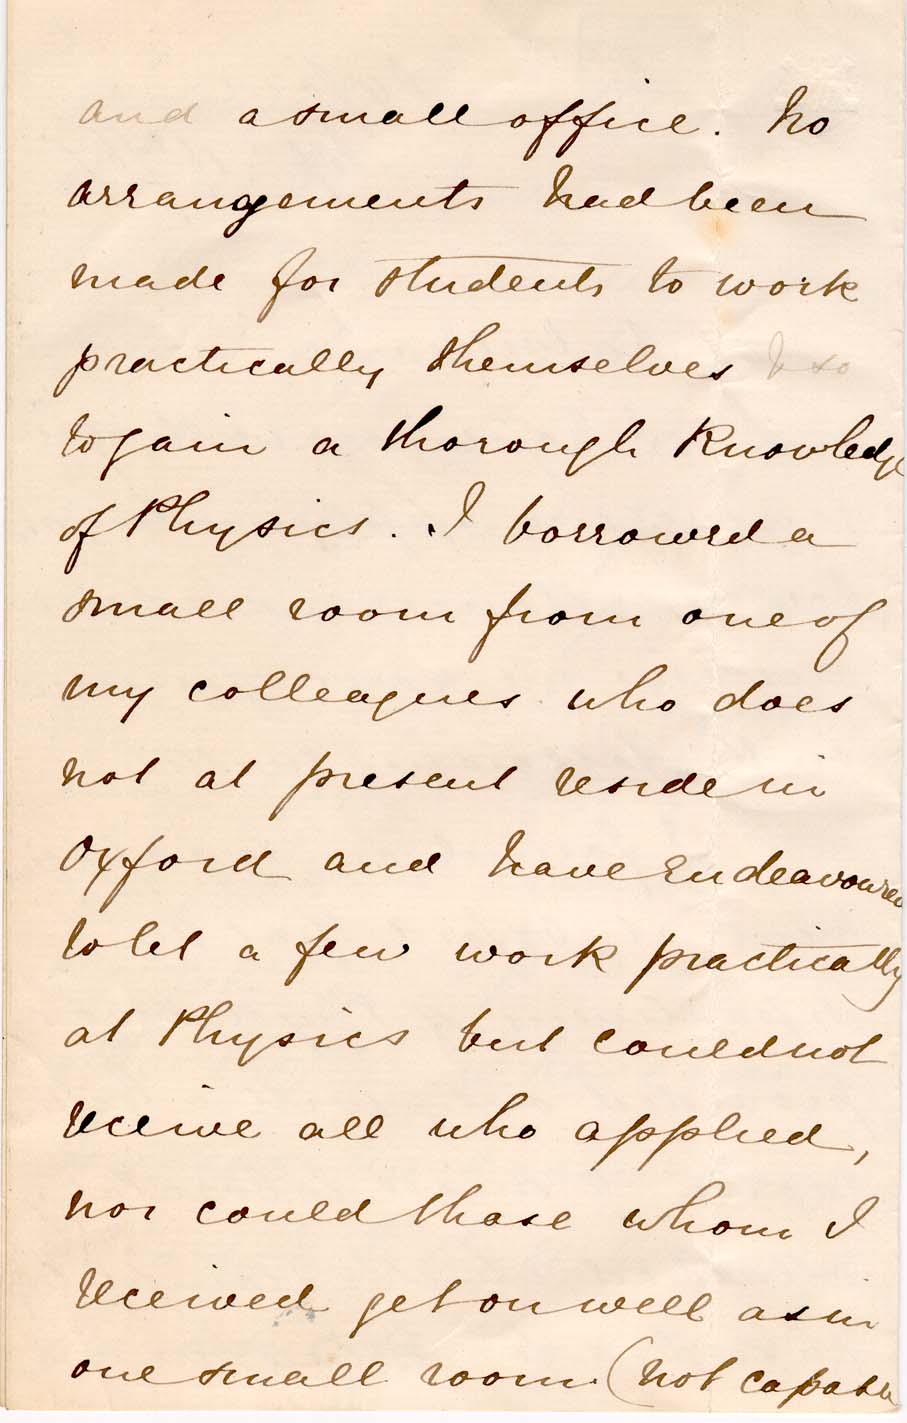 and a small office. No
arrangements had been
made for students to work
practically themselves & so
to gain a thorough knowledge
of Physics. I borrowed a
small room from one of
my colleagues who does
not at present reside in
Oxford and have endeavoured
to let a few work practically
at Physics but could not
receive all who applied,
nor could those whom I
received get on well as in
one small room (not capable